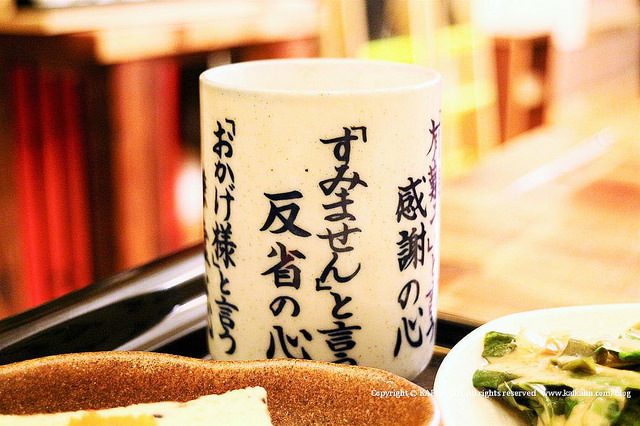 感謝の心
「すみません」と言う
反省の心
「おかげ様」と言う
Copyright © rights reserved www.kaikaku.com/blog